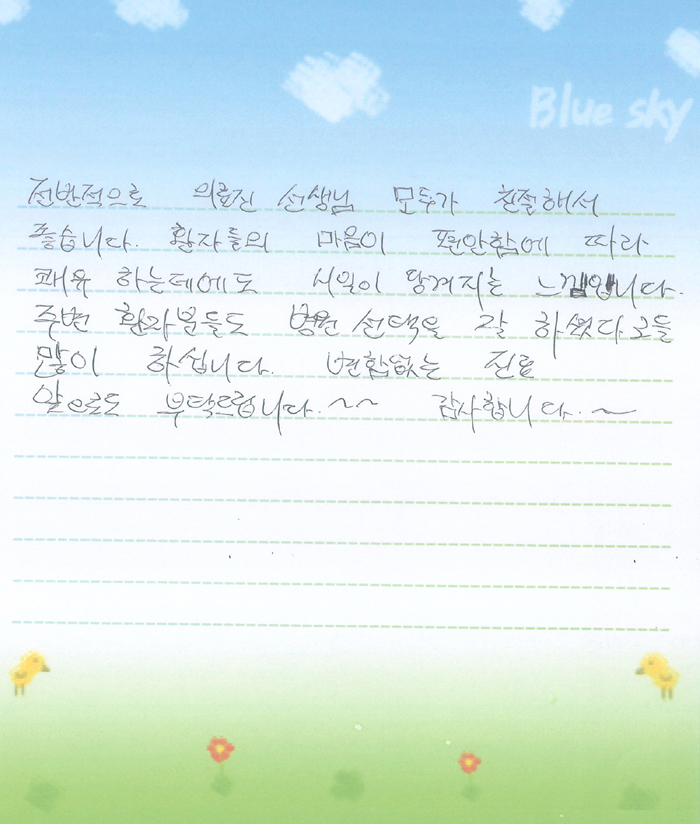 Blue sky
전반적으로 의료진 선생님 모두가 친절해서
좋습니다. 환자들의 마음이 편안함에 따라
쾌유 하는데에도 시일이 당겨지는 느낌입니다.
주변 환자분들도 병원 선택을 잘 하셨다고들
많이 하십니다. 변함없는 진료
앞으로도 부탁드립니다. ~~ 감사합니다. ~